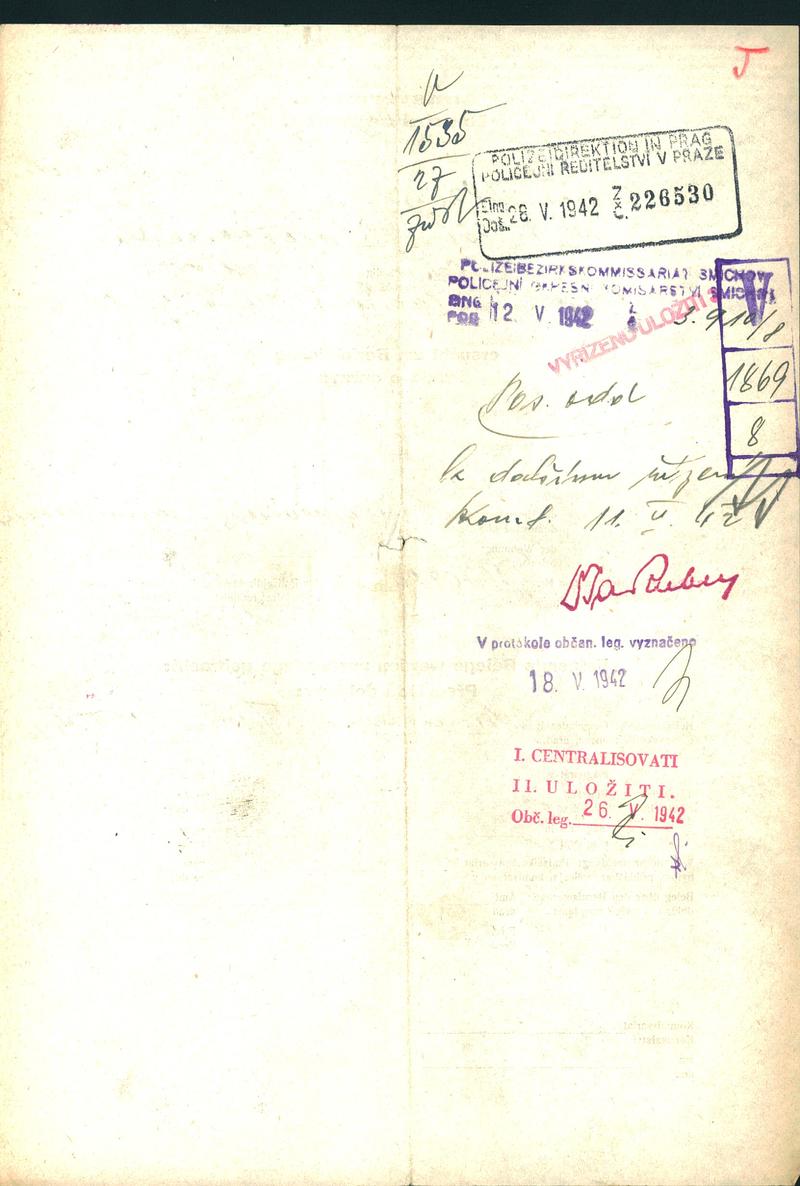 J
1535
27
POLIZEIDIREKTION IN PRAG
POLICEJNÍ ŘEDITELSTVÍ V PRAZE
Eing.
Doš.
28. V. 1942 Z. č. 226530
POLIZEIBEZIRKSKOMMISSARIAT SMICHOV
POLICEJNÍ OKRESNÍ KOMISAŘSTVÍ SMÍCHOV
EING
POD
12. V. 1942
V
VYŘÍZENO ULOŽITI
1869
8
Pas. odd
k dalšímu řízení
Koms. 11. V. 42
V protokole občan. leg. vyznačeno
18. V. 1942
I. CENTRALISOVATI
II. ULOŽITI.
Obč. leg. 26. V. 1942